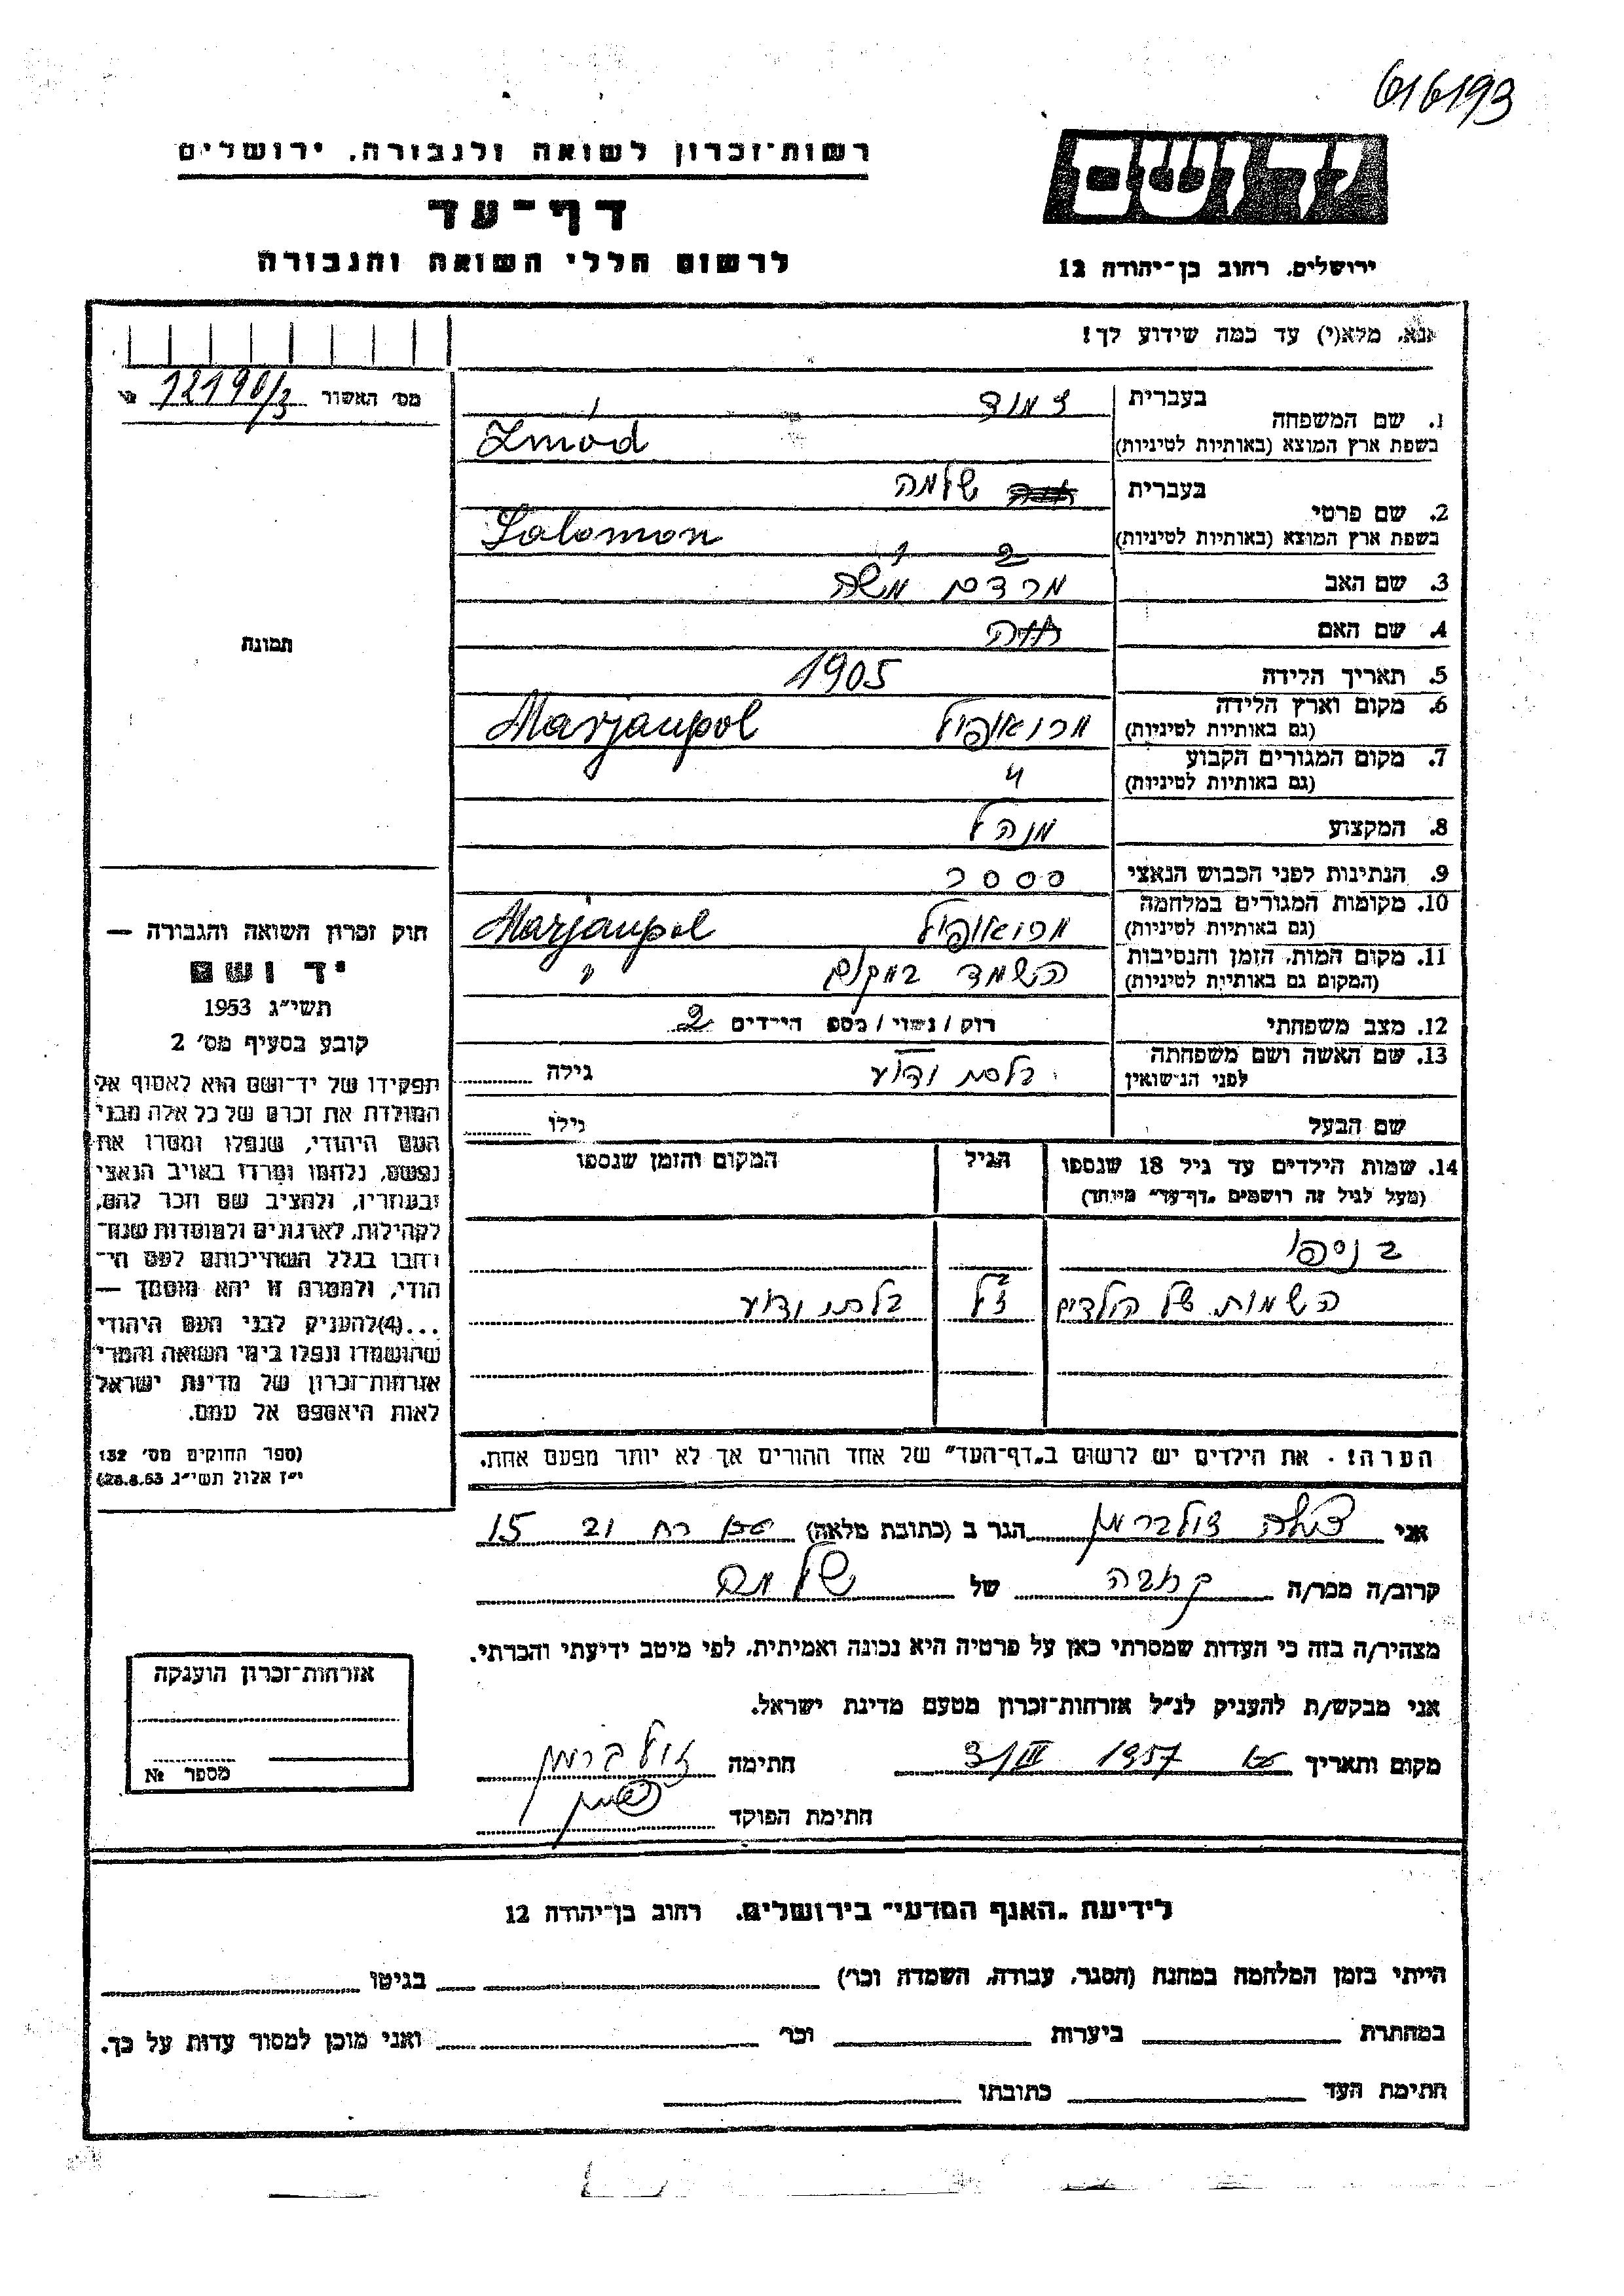 616193
רשות־זכרון לשואה ולגבורה, ירושלים
דף־עד
לרשום חללי השואה והגבורה
יד ושם
ירושלים, רחוב בן־יהודה 12
נא, מלא(י) עד כמה שידוע לך!
מס׳ האשור 12190/3
1. שם המשפחה
בעברית
בשפת ארץ המוצא (באותיות לטיניות)
Zmód
2. שם פרטי
בעברית שלמה
בשפת ארץ המוצא (באותיות לטיניות)
Salomon
3. שם האב משה
4. שם האם חוה
5. תאריך הלידה 1905
6. מקום וארץ הלידה
(גם באותיות לטיניות)
מריאופול Marjaupol
7. מקום המגורים הקבוע
(גם באותיות לטיניות)
״
8. המקצוע מנהל
9. הנתינות לפני הכבוש הנאצי
10. מקומות המגורים במלחמה
(גם באותיות לטיניות)
מריאופול Marjaupol
11. מקום המות, הזמן והנסיבות
(המקום גם באותיות לטיניות)
השמד במקום "
12. מצב משפחתי רוק / נשוי / מספ הילדים 2
13. שם האשה ושם משפחתה
לפני הנישואין
בלתי ידוע גילה
שם הבעל גילו
14. שמות הילדים עד גיל 18 שנספו
(מעל לגיל זה רושמים „דף־עד״ מיוחד)
הגיל
המקום והזמן שנספו
2 ניספו
השמות של הילדים
בלתי ידוע
הערה! . את הילדים יש לרשום ב„דף־העד״ של אחד ההורים אך לא יותר מפעם אחת.
תמונת
חוק זכרון השואה והגבורה —
יד ושם
תשי״ג 1953
קובע בסעיף מס׳ 2
תפקידו של יד־ושם הוא לאסוף אל
המולדת את זכרם של כל אלה מבני
העם היהודי, שנפלו ומסרו את
נפשם, נלחמו ומרדו באויב הנאצי
ובעוזריו, ולהציב שם וזכר להם,
לקהילות, לארגונים ולמוסדות שנח־
רבו בגלל השתייכותם לעם הי־
הודי, ולמטרה זו יהא מוסמך —
...(4)להעניק לבני העם היהודי
שהושמדו ונפלו בימי השואה והמרי
אזרחות־זכרון של מדינת ישראל
לאות היאספם אל עמם.
(ספר החוקים מס׳ 132
י״ז אלול תשי״ג 28.8.53)
אני זולברמן הגר ב (כתובת מלאה) רח 21 15
קרוב/ה מכר/ה קרובה של שלמה
מצהיר/ה בזה כי העדות שמסרתי כאן על פרטיה היא נכונה ואמיתית, לפי מיטב ידיעתי והכרתי.
אני מבקש/ת להעניק לנ״ל אזרחות־זכרון מטעם מדינת ישראל.
מקום ותאריך 1957 III/3 חתימה זולברמן
חתימת הפוקד
אזרחות־זכרון הוענקה
מספר №
לידיעת „האגף המדעי״ בירושלים, רחוב בן־יהודה 12
הייתי בזמן המלחמה במחנה (הסגר, עבודה, השמדה וכו׳) בגיטו
במחתרת ביערות וכו׳ ואני מוכן למסור עדות על כך.
חתימת העד כתובתו